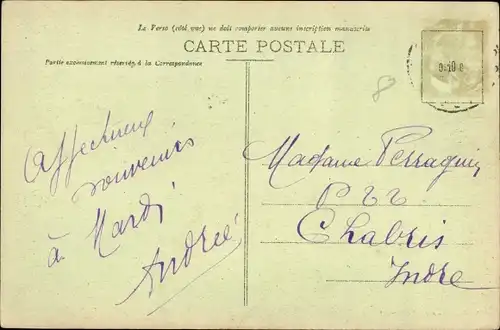 Le Verso (côté vue) ne doit comporter aucune inscription manuscrite
CARTE POSTALE
Partie exclusivement réservée à la Correspondance
8
Affectueux
souvenirs
à Mardi!
Andrée!
Madame Perraguin
P
Chabris
Indre